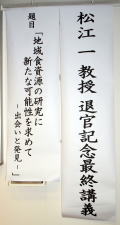 松江 一 教授 退官記念最終講義
題目
「地域食資源の研究に
新たな可能性を求めて
－出会いと発見－」